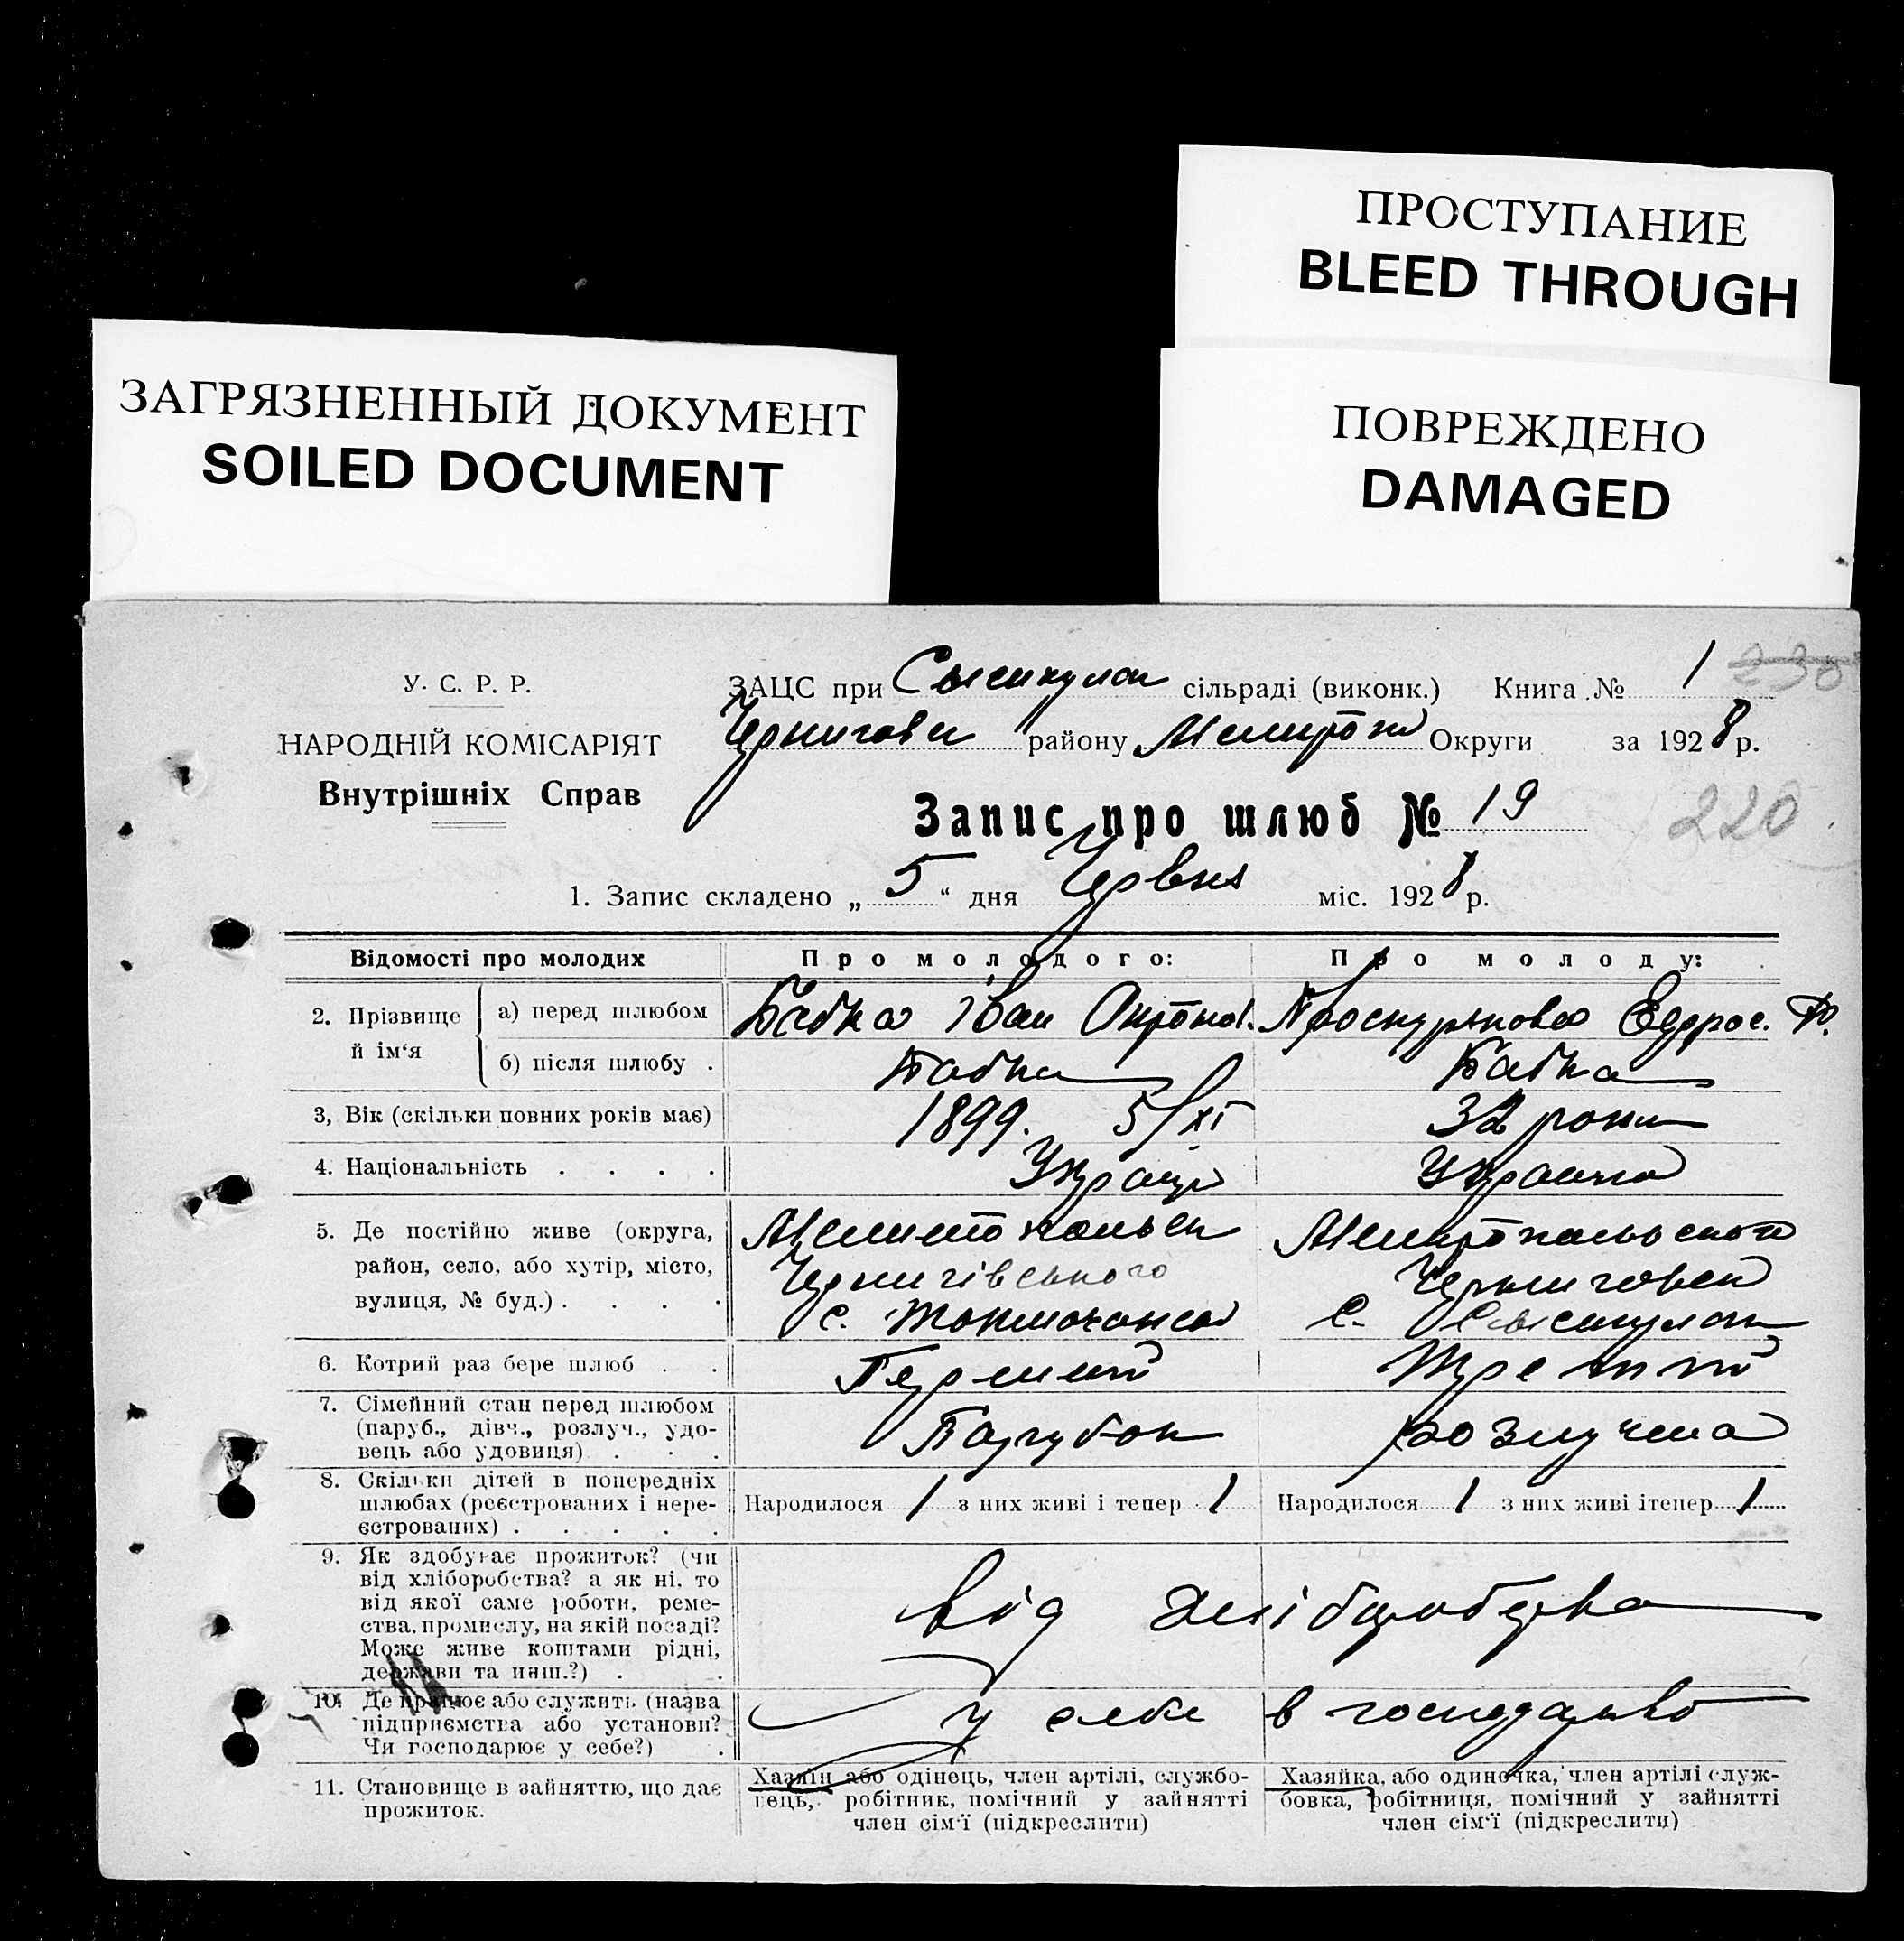 ПРОСТУПАНИЕ
BLEED THROUGH
ЗАГРЯЗНЕННЫЙ ДОКУМЕНТ
SOILED DOCUMENT
ПОВРЕЖДЕНО
DAMAGED
У. С. Р. Р.
НАРОДНІЙ КОМІСАРІЯТ
Внутрішніх Справ
ЗАЦС при сільраді (виконк.) Книга № 1 230
району Округи за 1928 р.
Запис про шлюб № 19
220
1. Запис складено „ 5 “ дня Червня міс. 1928 р.
Відомості про молодих
Про молодого:
Про молоду:
2. Прізвище й ім‘я
а) перед шлюбом
Бабка Іван
Проскурякова
Ф.
б) після шлюбу .
Бабка
Бабка
3, Вік (скільки повних років має)
1899. 5/XI
32 роки
4. Національність . . . .
Украце
Украинка
5. Де постійно живе (округа,
район, село, або хутір, місто,
вулиця, № буд.) . . . .
Чернигівського
с.
Мелитопольского
с.
6. Котрий раз бере шлюб . .
Перший
Третий
7. Сімейний стан перед шлюбом
(паруб., дівч., розлуч., удо-
вець або удовиця) . . .
Парубок
розлучена
8. Скільки дітей в попередніх
шлюбах (реєстрованих і нере-
єстрованих) . . . . .
Народилося 1 з них живі і тепер 1
Народилося 1 з них живі ітепер 1
9. Як здобуває прожиток? (чи
від хліборобства? а як ні, то
від якої саме роботи, реме-
ства, промислу, на якій посаді?
Може живе коштами рідні,
держави та инш.?) . .
від хліборобства
10. Де працює або служить (назва
підприємства або установи?
Чи господарює у себе?) .
у себе в господарстві
11. Становище в зайняттю, що дає
прожиток.
Хазяїн або одінець, член артілі, службо-
вець, робітник, помічний у зайнятті
член сім‘ї (підкреслити)
Хазяйка, або одиночка, член артілі служ-
бовка, робітниця, помічний у зайнятті
член сім‘ї (підкреслити)